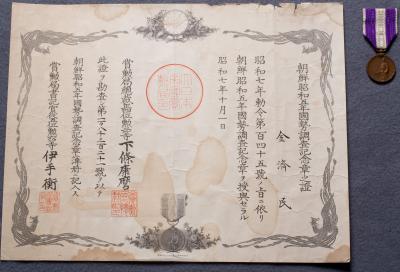 朝鮮昭和五年國勢調査記念章之證
金濟民
昭和七年勅令第百四十五號ノ旨ニ依リ
朝鮮昭和五年國勢調査記念章ヲ授與セラル
昭和七年十月一日
賞勲局總裁
下條康麿
此證ヲ勘査シ第
號ヲ以テ
朝鮮昭和五年國勢調査記念章簿册ニ記入ス
賞勲局書記官
伊手衡